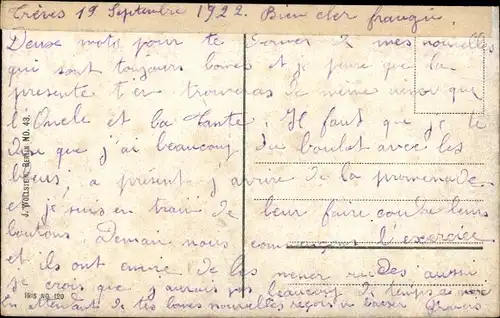 Trèves 19 Septembre 1922. Bien cher frangin.
Deux mots pour te donner de mes nouvelles
qui sont toujours bonnes et je pense que la
présente t'en trouveras de même ainsi que
l'Oncle et la Tante. Il faut que je te
dise que j'ai beaucoup du boulot avec les
bleus, a présent j'arrive de la promenade
et je suis en train de leur faire coudre leurs
boutons. Demain nous commençons l'exercice
et ils ont envie de les mener rudes aussi
je crois que j'aurais pas beaucoup de temps a moi
En attendant de tes bonnes nouvelles reçois un baiser
J. WOLLSTEIN, BERLIN NO. 43.
1915 NO. 120